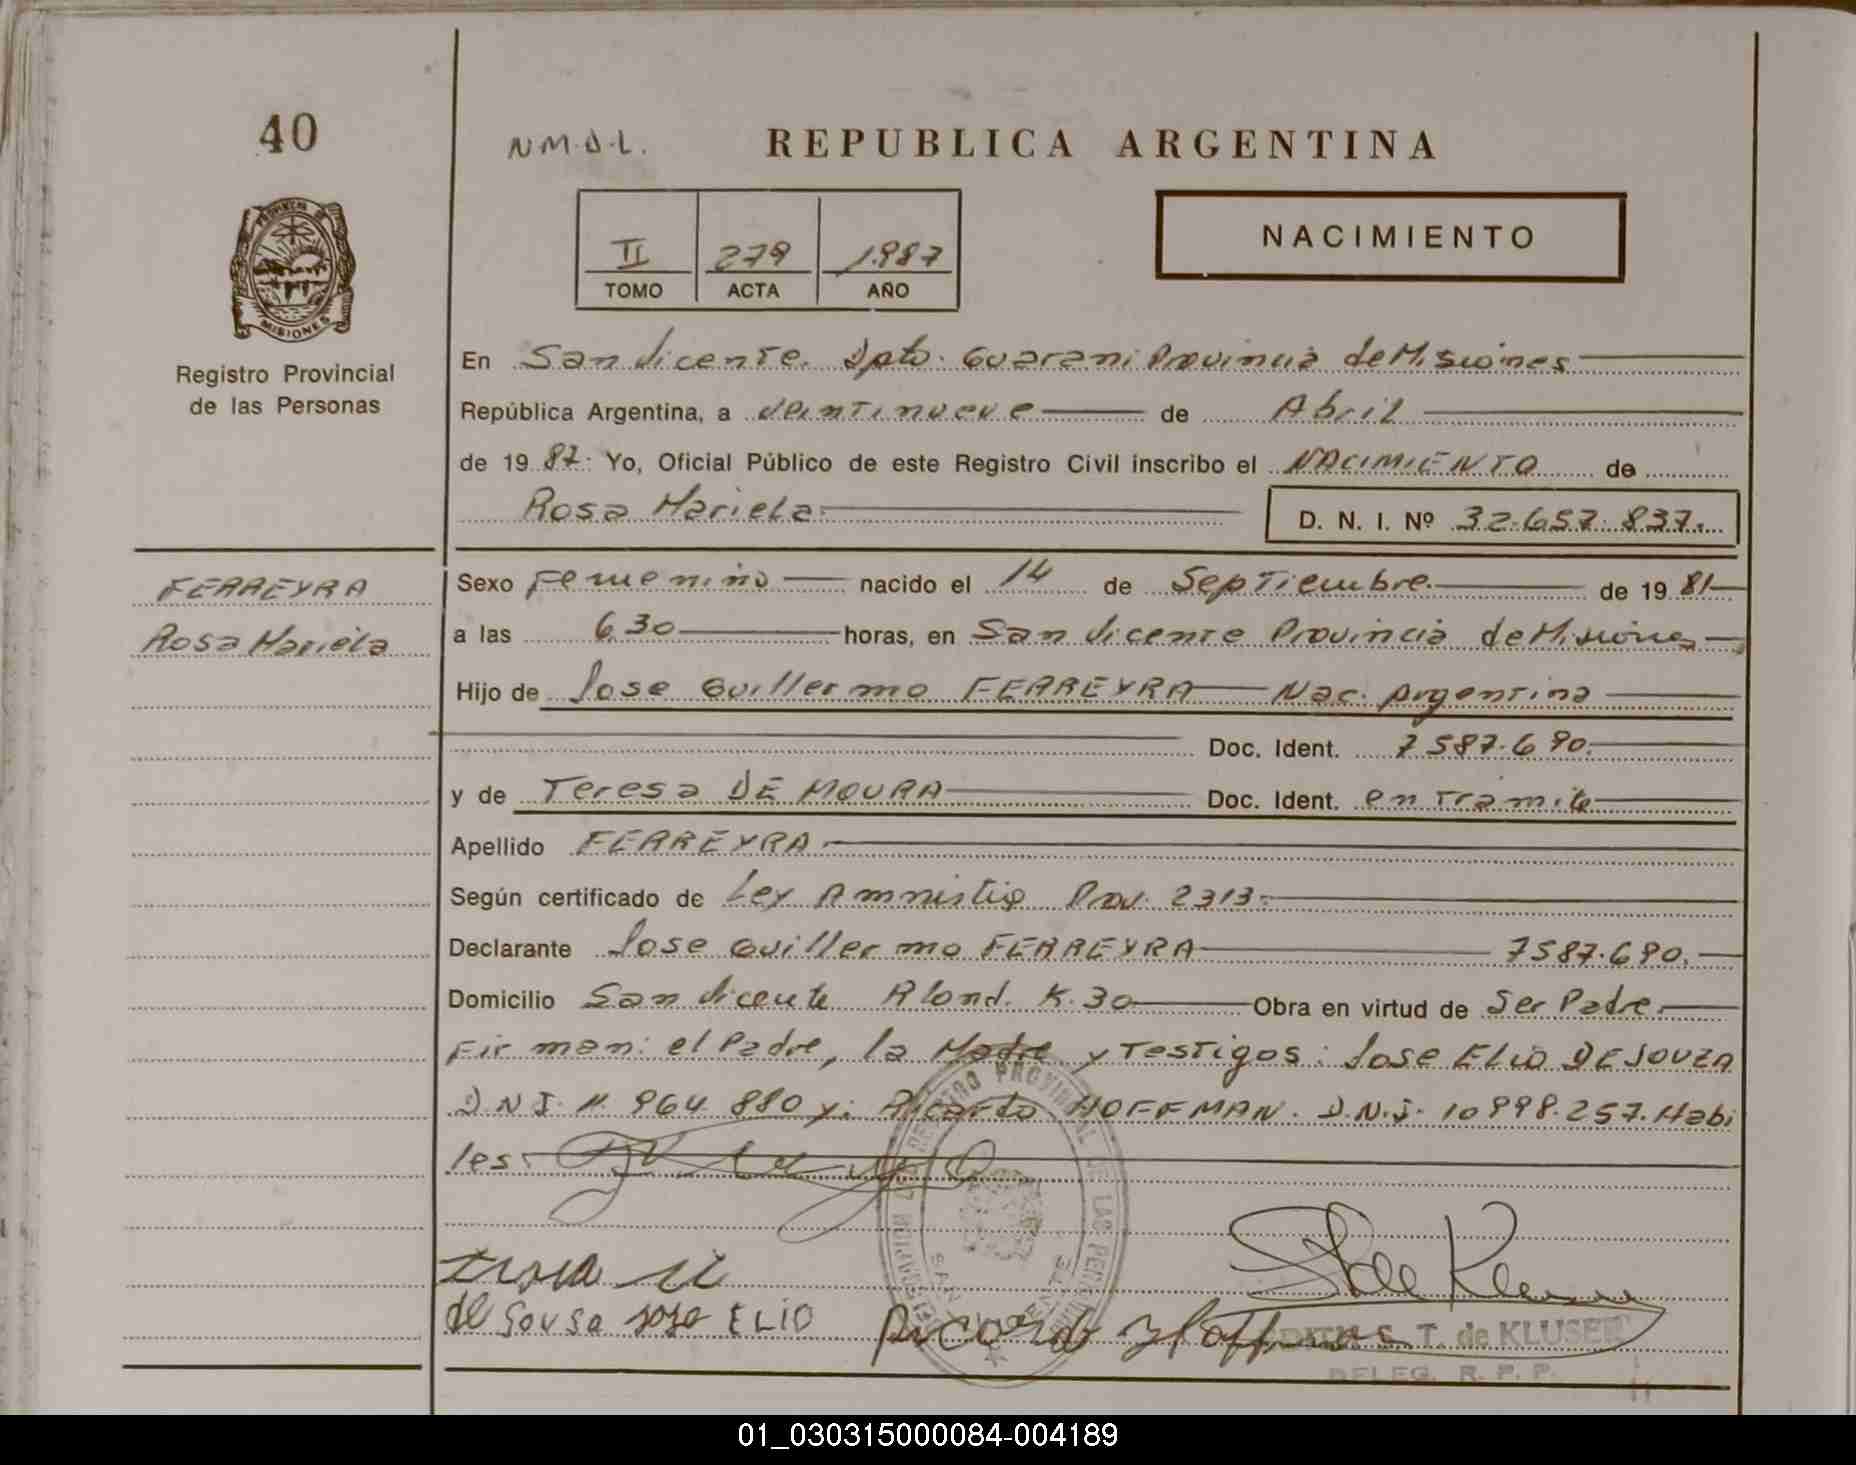 40
N.M.D.L.
REPUBLICA ARGENTINA
II 279 1.987
TOMO ACTA AÑO
NACIMIENTO
PROVINCIA DE
MISIONES
Registro Provincial
de las Personas
En San Vicente. Dpto. Guarani Provincia de Misiones
República Argentina, a veintinueve de Abril
de 19 87. Yo, Oficial Público de este Registro Civil inscribo el NACIMIENTO de
Rosa Mariela D. N. I. Nº 32.657.837.
FERREYRA
Rosa Mariela
Sexo Femenino nacido el 14 de Septiembre. de 19 81
a las 6 30 horas, en San Vicente Provincia de Misiones
Hijo de Jose Guillermo FERREYRA Nac. Argentina
Doc. Ident. 7587.690.
y de Teresa DE MOURA Doc. Ident. en tramite
Apellido FERREYRA
Según certificado de Ley Amnistia Prov. 2313.
Declarante Jose Guillermo FERREYRA 7587.690.
Domicilio San Vicente Rlond. K. 30 Obra en virtud de Ser Padre
Firman: el Padre, la Madre y Testigos: Jose Elio DE SOUZA
D.N.I. 11.964.880 y: Ricardo HOFFMAN. D.N.I. 10998.257. Habi
les.
de Sousa jose ELIO
Ricardo Hoffman
EDITH S. T. de KLUSER
DELEG. R. P. P.
REGISTRO PROVINCIAL DE LAS PERSONAS
SAN VICENTE
01_030315000084-004189